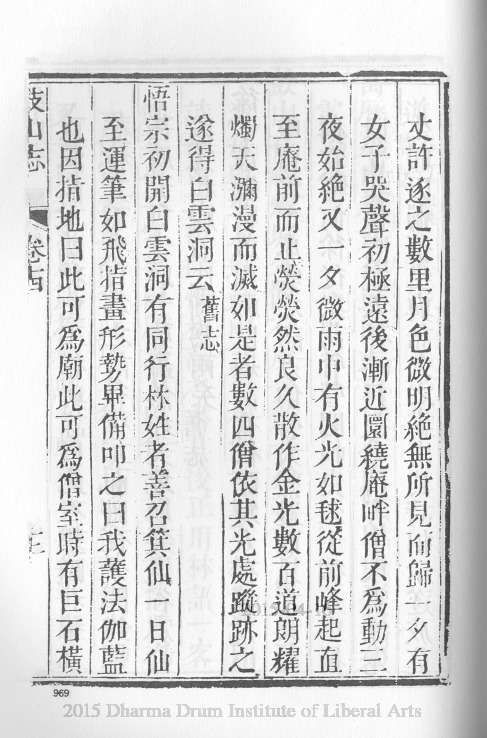 丈許逐之數里月色微明絶無所見而歸一夕有
女子哭聲初極遠後漸近圜繞庵畔僧不爲動三
夜始絶又夕微雨中有火光如毬從前峰起直
至庵前而止熒熒然良久散作金光數百道朗耀
燭天瀰漫而滅如是者數四僧依其光處蹤跡之
遂得白雲洞云舊志
悟宗初開白雲洞有同行林姓者善召箕仙 日仙
至運筆如飛指畫形勢畢備叩之曰我護法伽藍
也因指地曰此可爲廟此可爲僧室時有巨石橫
鼓山志 卷十四
969
2015 Dharma Drum Institute of Liberal Arts